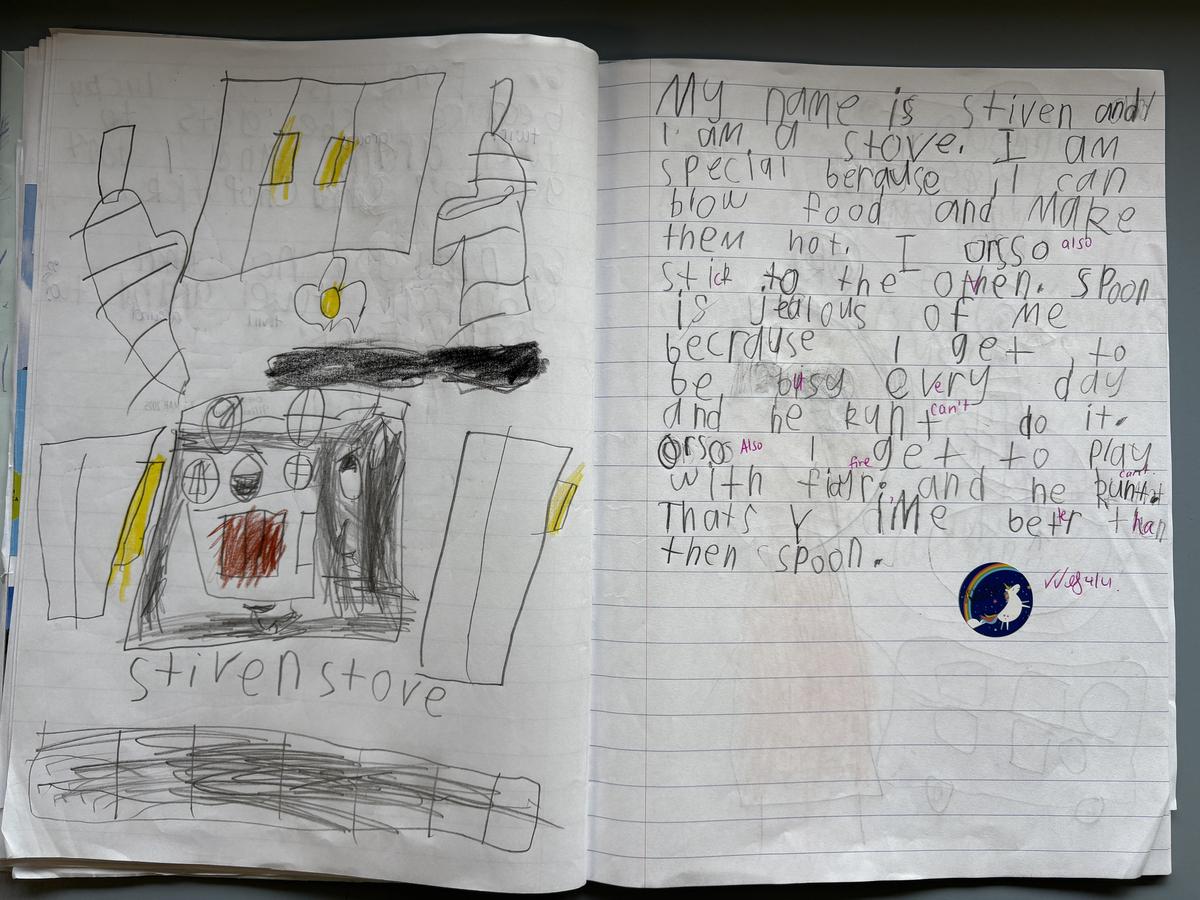 stiven stove
My name is stiven and
i am a stove. I am
special berause i can
blow food and Make
them hot. I orso also
stick to the othen. spoon
is jealous of me
becrause I get to
be busy every day
and he kunt can't do it.
orsos Also I get to play
with fidyr. fire and he kunt can't
Thats y I'Me better than
then spoon.